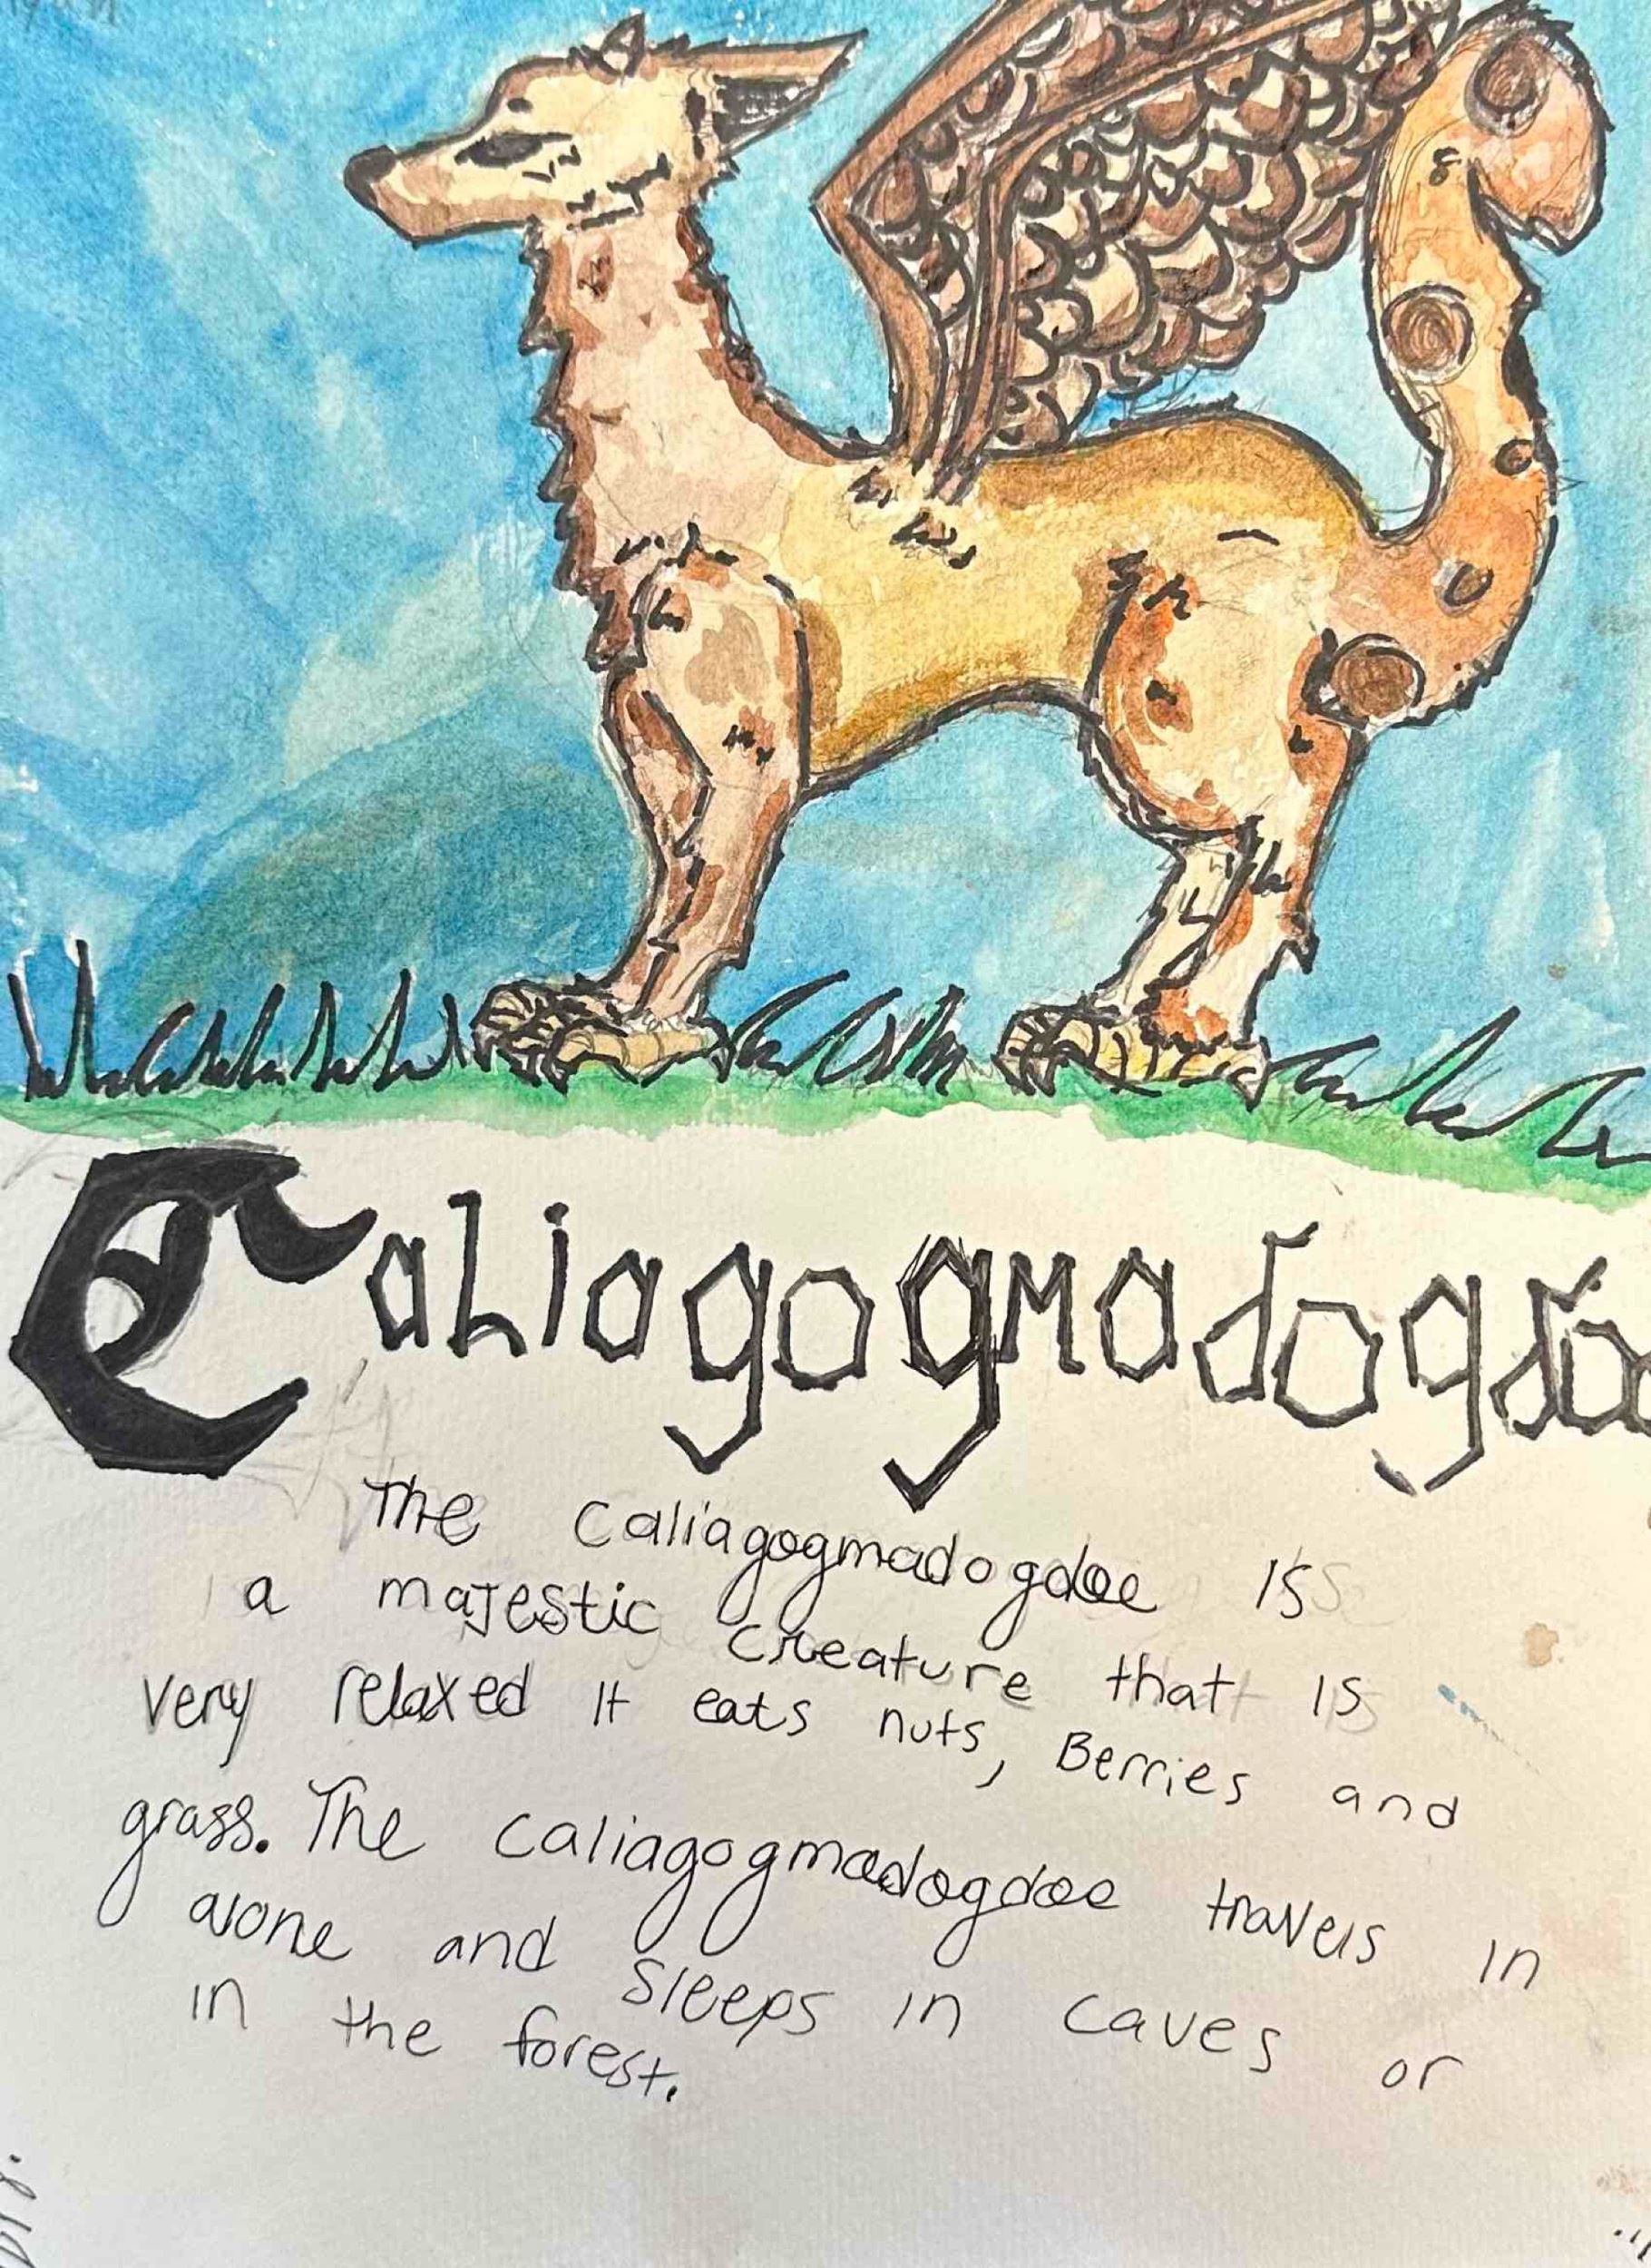 Caliagogmadogdo
The Caliagogmadogdoe is
a majestic creature that is
very relaxed It eats nuts, Berries and
grass. The caliagogmadogdoe travels in
alone and sleeps in caves or
in the forest.